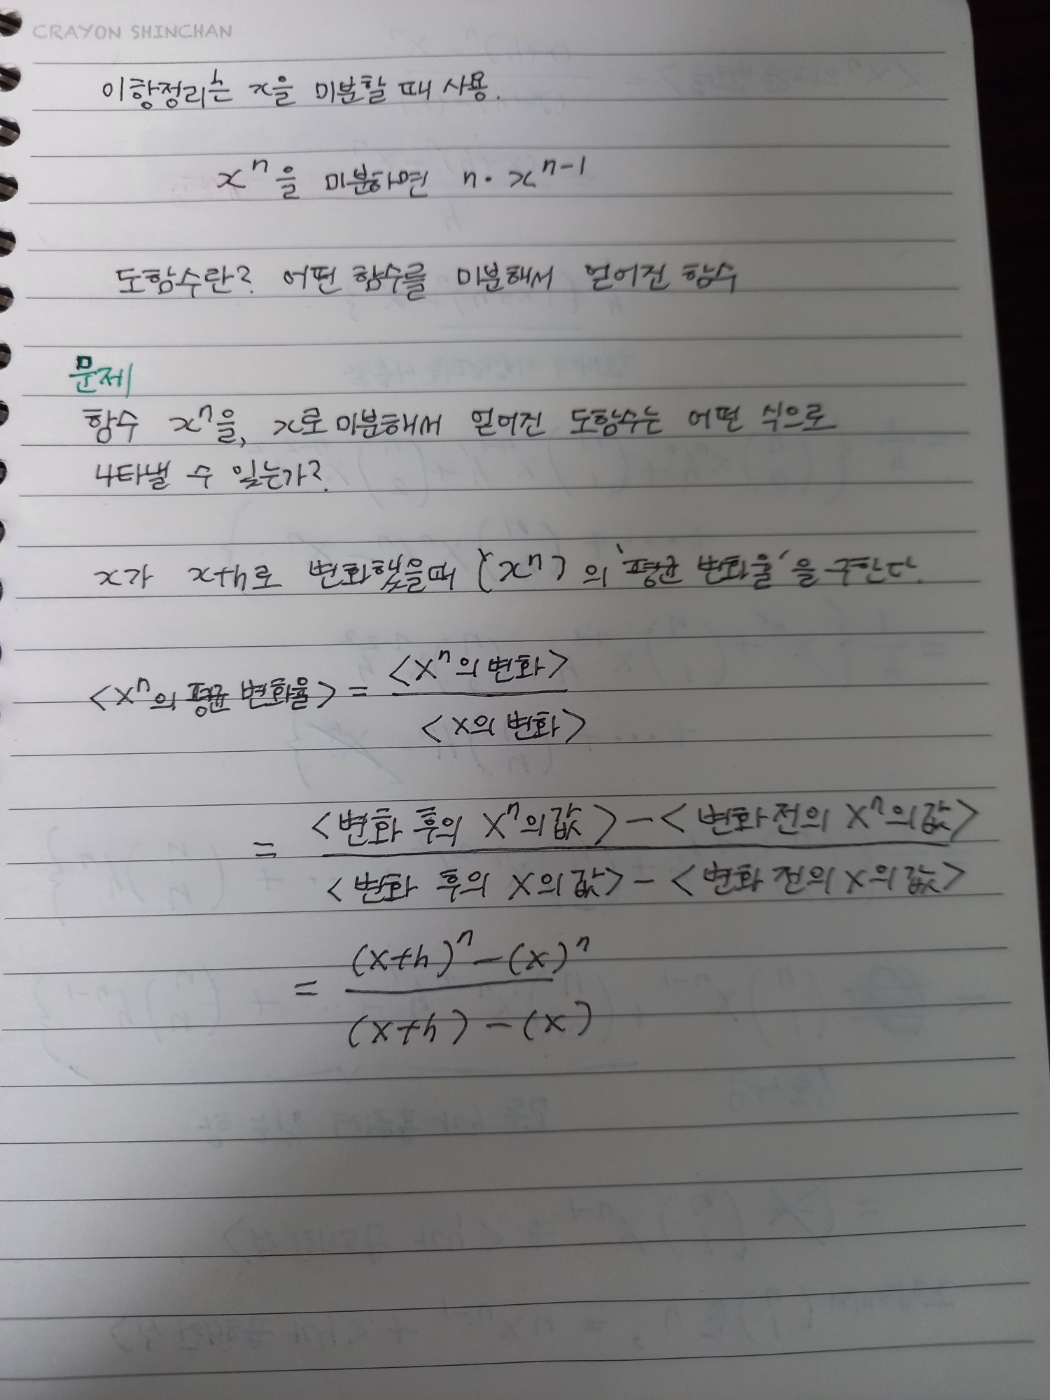 CRAYON SHINCHAN
이항정리는 x을 미분할 때 사용.
xⁿ을 미분하면 n・xⁿ⁻¹
도함수란? 어떤 함수를 미분해서 얻어진 함수
문제
함수 xⁿ을, x로 미분해서 얻어진 도함수는 어떤 식으로
나타낼 수 있는가?
x가 x+h로 변화했을때 (xⁿ)의 '평균 변화율'을 구한다.
<xⁿ의 평균 변화율> = <xⁿ의 변화>
<x의 변화>
= <변화 후의 xⁿ의 값> - <변화 전의 xⁿ의 값>
<변화 후의 x의 값> - <변화 전의 x의 값>
= (x+h)ⁿ - (x)ⁿ
(x+h) - (x)